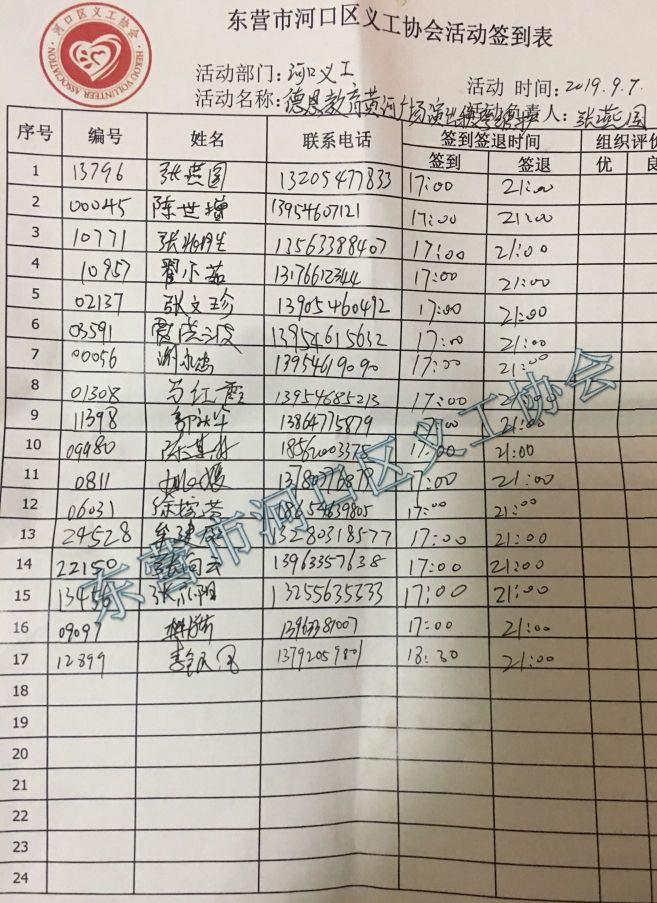 河口区义工协会
HEKOU VOLUNTEER ASSOCIATION
东营市河口区义工协会活动签到表
活动部门：河口义工
活动 时间：2019.9.7.
活动名称：德恩教育黄河广场演出秩序维护
活动负责人：张燕图
序号 编号 姓名 联系电话 签到签退时间 组织评价
签到 签退 优 良
1 13796 张燕图 13205477833 17:00 21:00
2 00045 陈世增 13954607121 17:00 21:00
3 10771 13563388407 17:00 21:00
4 10957 13176612344 17:00 21:00
5 02137 张文珍 13905460492 17:00 21:00
6 03591 13954615632 17:00 21:00
7 00056 13954619090 17:00 21:00
8 01308 马红霞 13954685213 17:00 21:00
9 11398 13864775879 17:00 21:00
10 09980 17:00 21:00
11 0811 17:00 21:00
12 06031 17:00 21:00
13 24528 13280318577 17:00 21:00
14 22150 13963357638 17:00 21:00
15 13255635333 17:00 21:00
16 09097 13963381007 17:00 21:00
17 12899 13792059801 18:30 21:00
18
19
20
21
22
23
24
东营市河口区义工协会